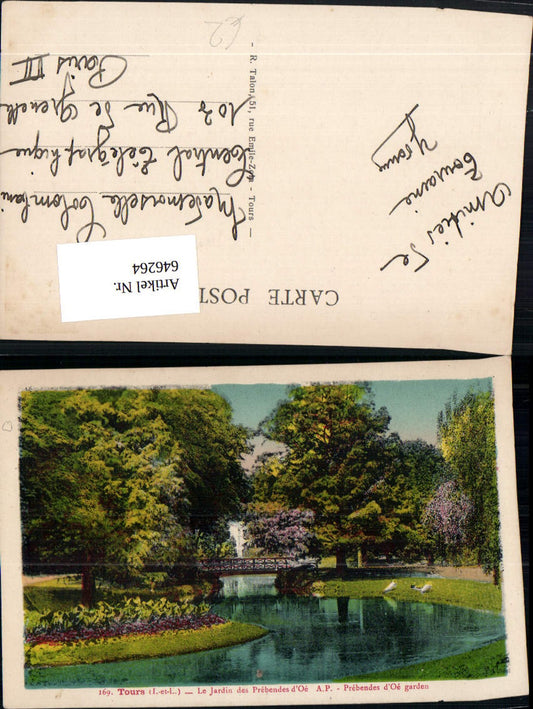 CARTE POSTALE
Amitiés de
Touraine
Yvonne
R. Talon, 51, rue Emile-Zola - Tours —
Mademoiselle Colombani
Central Télégraphique
103 Rue de Grenelle
Paris VII
Artikel Nr.
646264
169. Tours (I.-et-L.) — Le Jardin des Prébendes d'Oé A.P. - Prébendes d'Oé garden